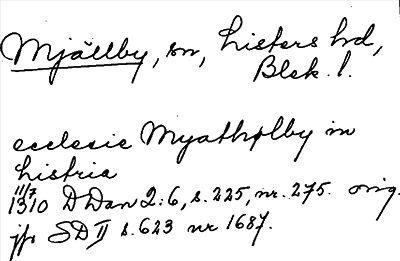 Mjällby, sn, Listers hd,
Blek. l.
ecclesie Myathølby in
Listria
11/7
1310 DDan 2:6, s. 225, nr. 275. orig.
jfr SD II s. 623 nr 1687.